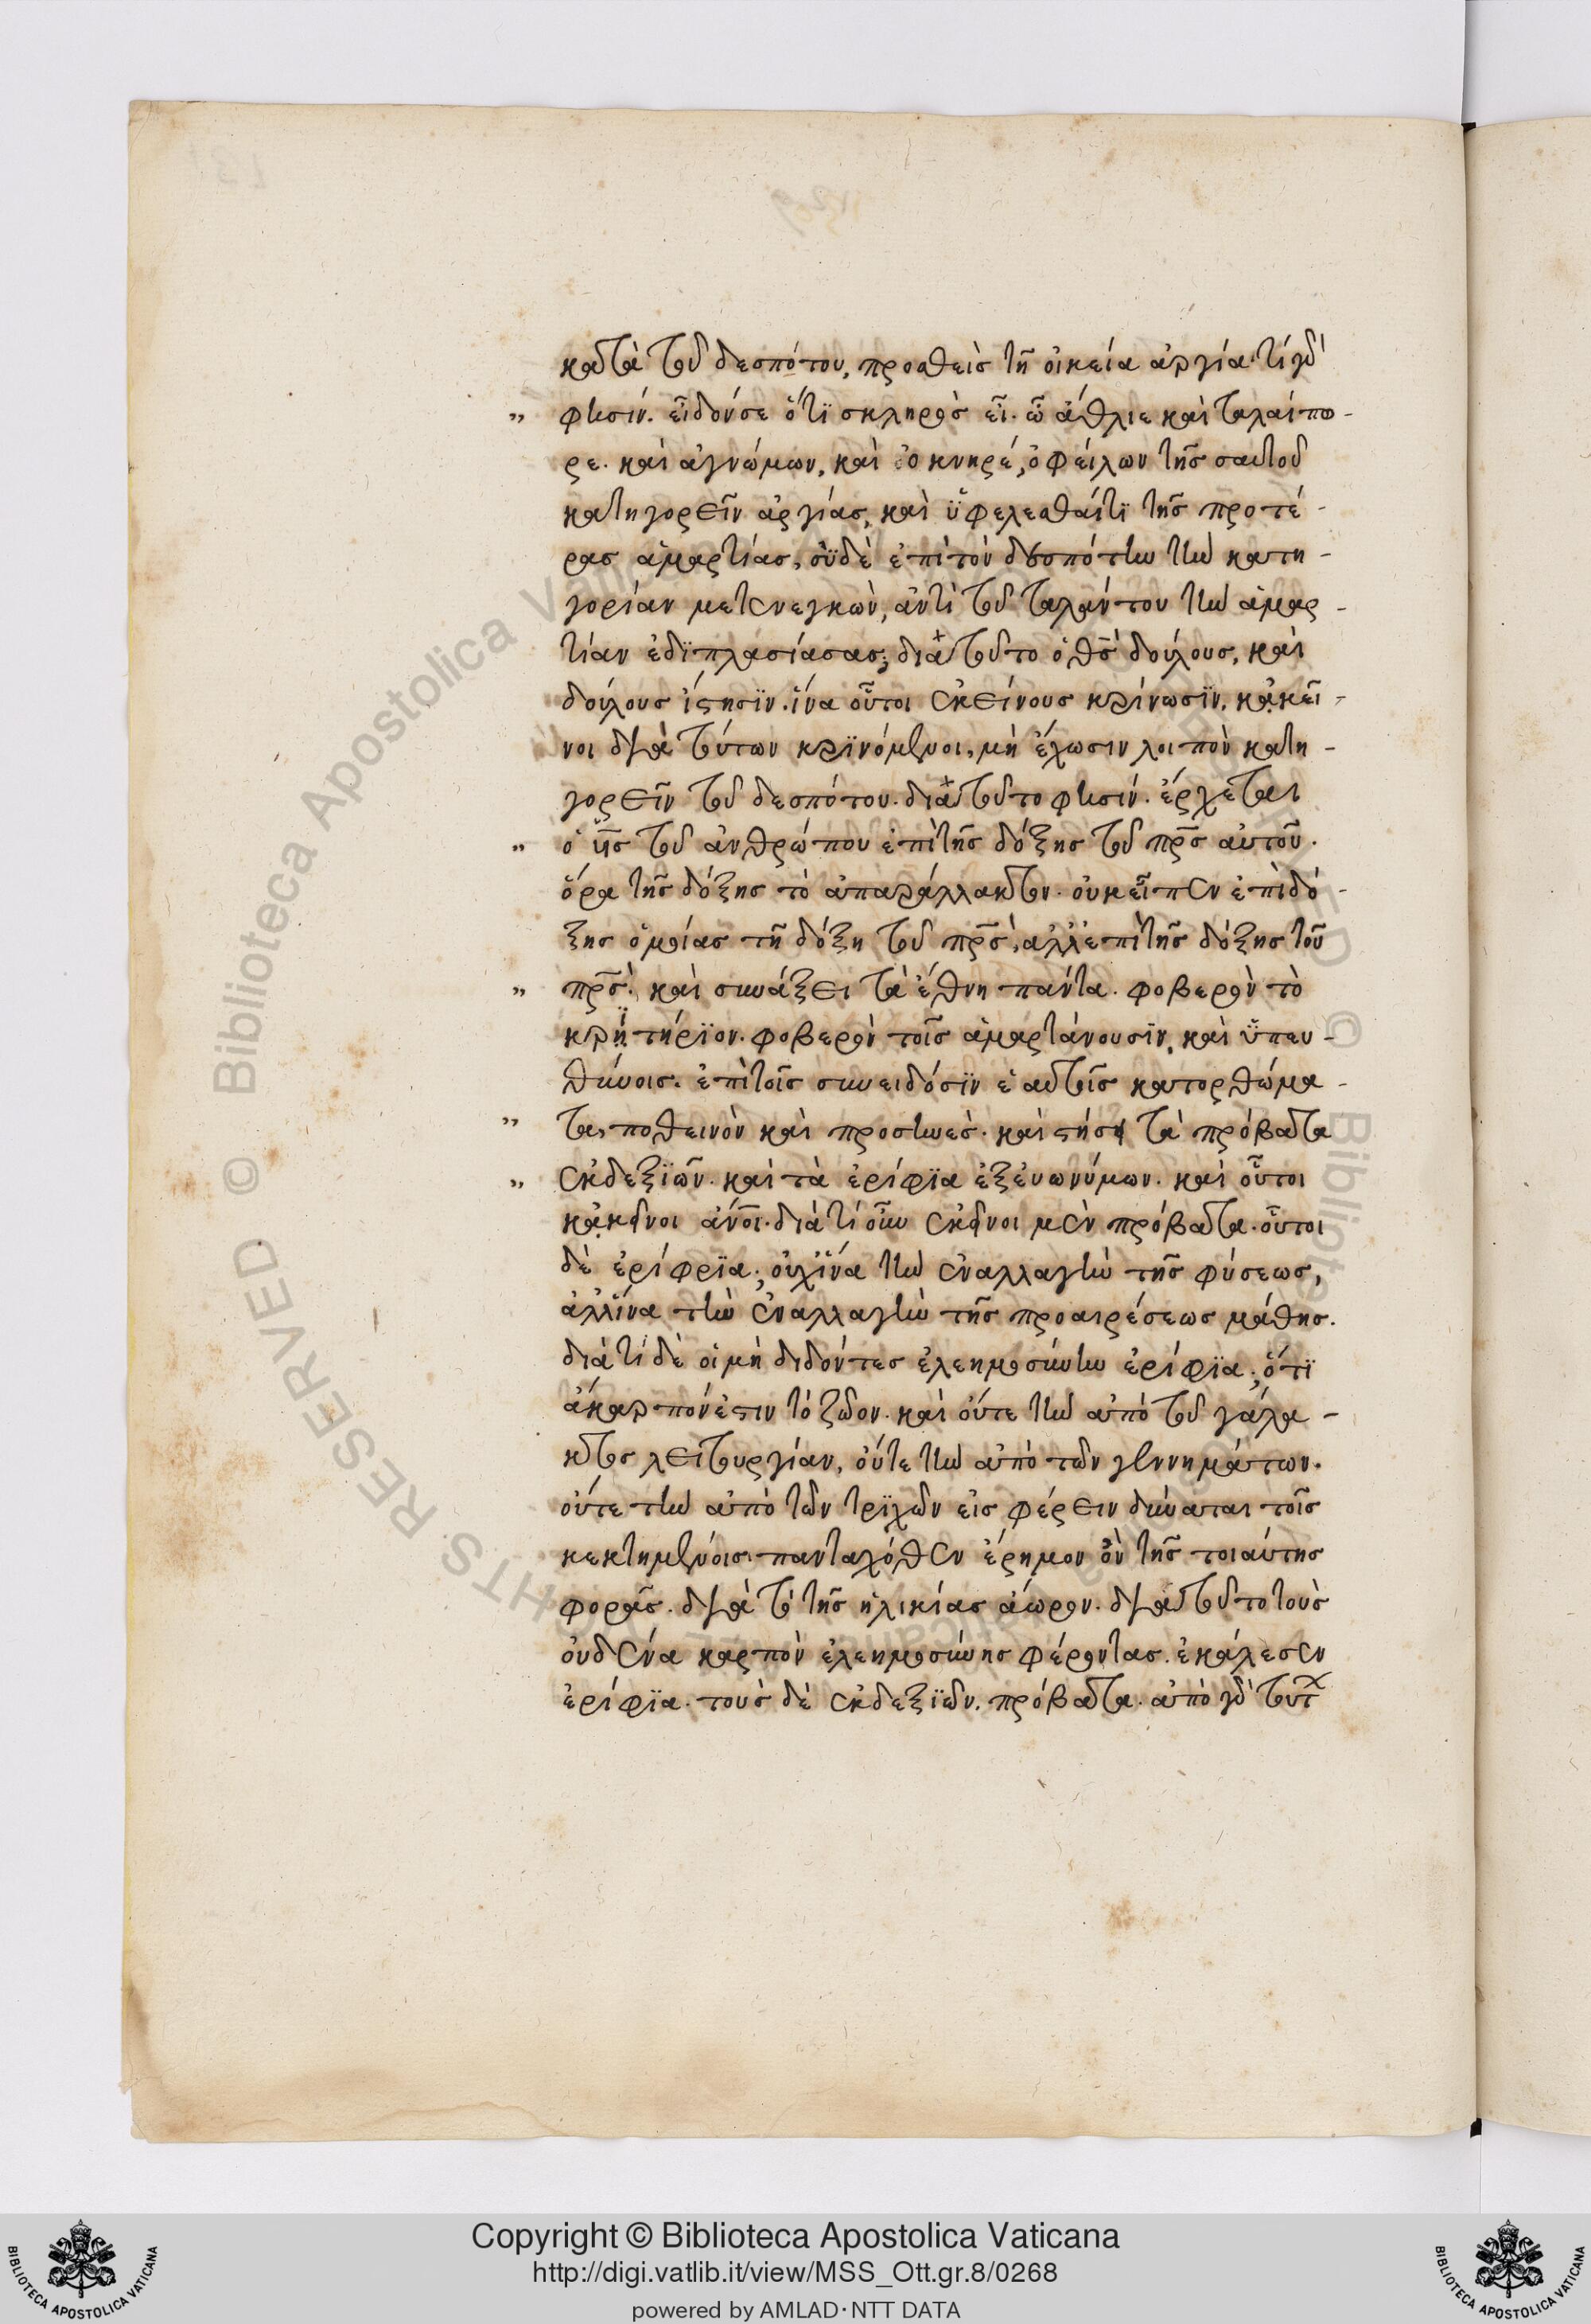 κατὰ τοῦ δεσπότου, προσθεὶς τῆ οἰκεία ἀργία· τί γὰρ
„ φησίν. εἶδόν σε ὅτϊ σκληρὸς εἶ. ὦ ἄθλιε καὶ ταλαίπω-
ρε. καὶ ἀγνώμων, καὶ ὀκνηρέ, ὀφείλων τῆς σαυτοῦ
κατηγορεῖν ἀργίας, καὶ ὑφελέσθαί τϊ τῆς προτέ-
ρας ἁμαρτίας, οὐδὲ ἐπὶ τὸν δεσπότην τὴν κατη-
γορίαν μετενεγκὼν, ἀντὶ τοῦ ταλάντου τὴν ἁμαρ-
τίαν ἐδϊπλασίασας; διὰ τοῦτο ὁ θς δούλους, καὶ
δούλους ἵστησϊν. ἵνα οὗτοι ἐκείνους κρίνωσϊν. κἀκεῖ-
νοι διὰ τούτων κρϊνόμενοι, μὴ ἔχωσιν λοιπὸν κατη-
γορεῖν τοῦ δεσπότου. διὰ τοῦτο φησίν. ἔρχεται
„ ὁ υἱς τοῦ ἀνθρώπου ἐπὶ τῆς δόξης τοῦ πρς αὐτοῦ.
ὅρα τῆς δόξης τὸ ἀπαράλλακτον. οὐκ εἶπεν ἐπὶ δό-
ξης ὁμοίας τῆ δόξη τοῦ πρς, ἀλλ' ἐπὶ τῆς δόξης τοῦ
„ πρς. καὶ συνάξει τὰ ἔθνη πάντα. φοβερὸν τὸ
κρητήρϊον. φοβερὸν τοῖς ἁμαρτάνουσϊν, καὶ ὑπευ-
θύνοις. ἐπὶ τοῖς συνειδόσϊν ἑαυτοῖς κατορθώμα-
„ τα, ποθεινὸν καὶ προσηνές. καὶ στήσει τὰ πρόβατα
„ ἐκ δεξϊῶν. καὶ τὰ ἐρίφϊα ἐξ εὐωνύμων. καὶ οὗτοι
κἀκεῖνοι ἄνοι. διὰ τί οὖν ἐκεῖνοι μὲν πρόβατα. οὗτοι
δὲ ἐρίφρϊα; οὐχ ἵνα τὴν ἐναλλαγὴν τῆς φύσεως,
ἀλλ' ἵνα τὴν ἐναλλαγὴν τῆς προαιρέσεως μάθης.
διὰ τί δὲ οἱ μὴ διδόντες ἐλεημοσύνην ἐρίφϊα; ὅτϊ
ἄκαρπόν ἐστιν τὸ ζῶον. καὶ οὔτε τὴν ἀπὸ τοῦ γάλα-
κτος λειτουργίαν, οὔτε τὴν ἀπὸ τῶν γεννημάτων.
οὔτε τὴν ἀπὸ τῶν τρϊχῶν εἰσφέρειν δύναται τοῖς
κεκτημένοις· πανταχόθεν ἔρημον ὂν τῆς τοιαύτης
φορᾶς. διὰ τὸ τῆς ἡλικίας ἄωρον. διὰ τοῦτο τοὺς
οὐδένα καρπὸν ἐλεημοσύνης φέροντας. ἐκάλεσεν
ἐρίφϊα. τοὺς δὲ ἐκ δεξϊῶν. πρόβατα. ἀπὸ γὰρ τούτ
Copyright © Biblioteca Apostolica Vaticana
http://digi.vatlib.it/view/MSS_Ott.gr.8/0268
powered by AMLAD·NTT DATA